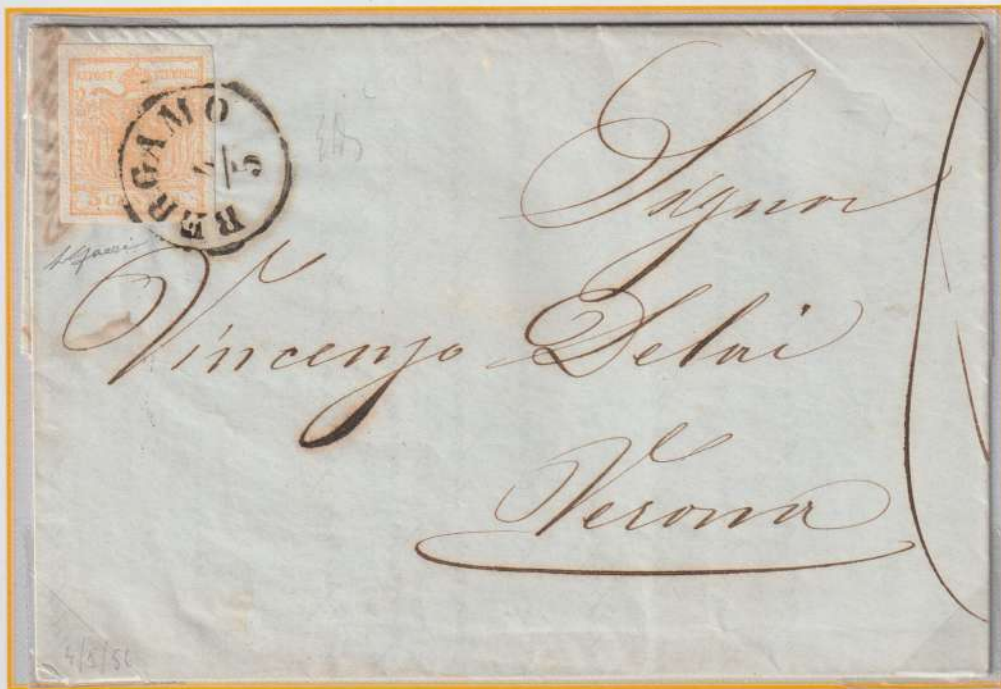 BERGAMO
4/5
Signor
Vincenzo Delai
Verona